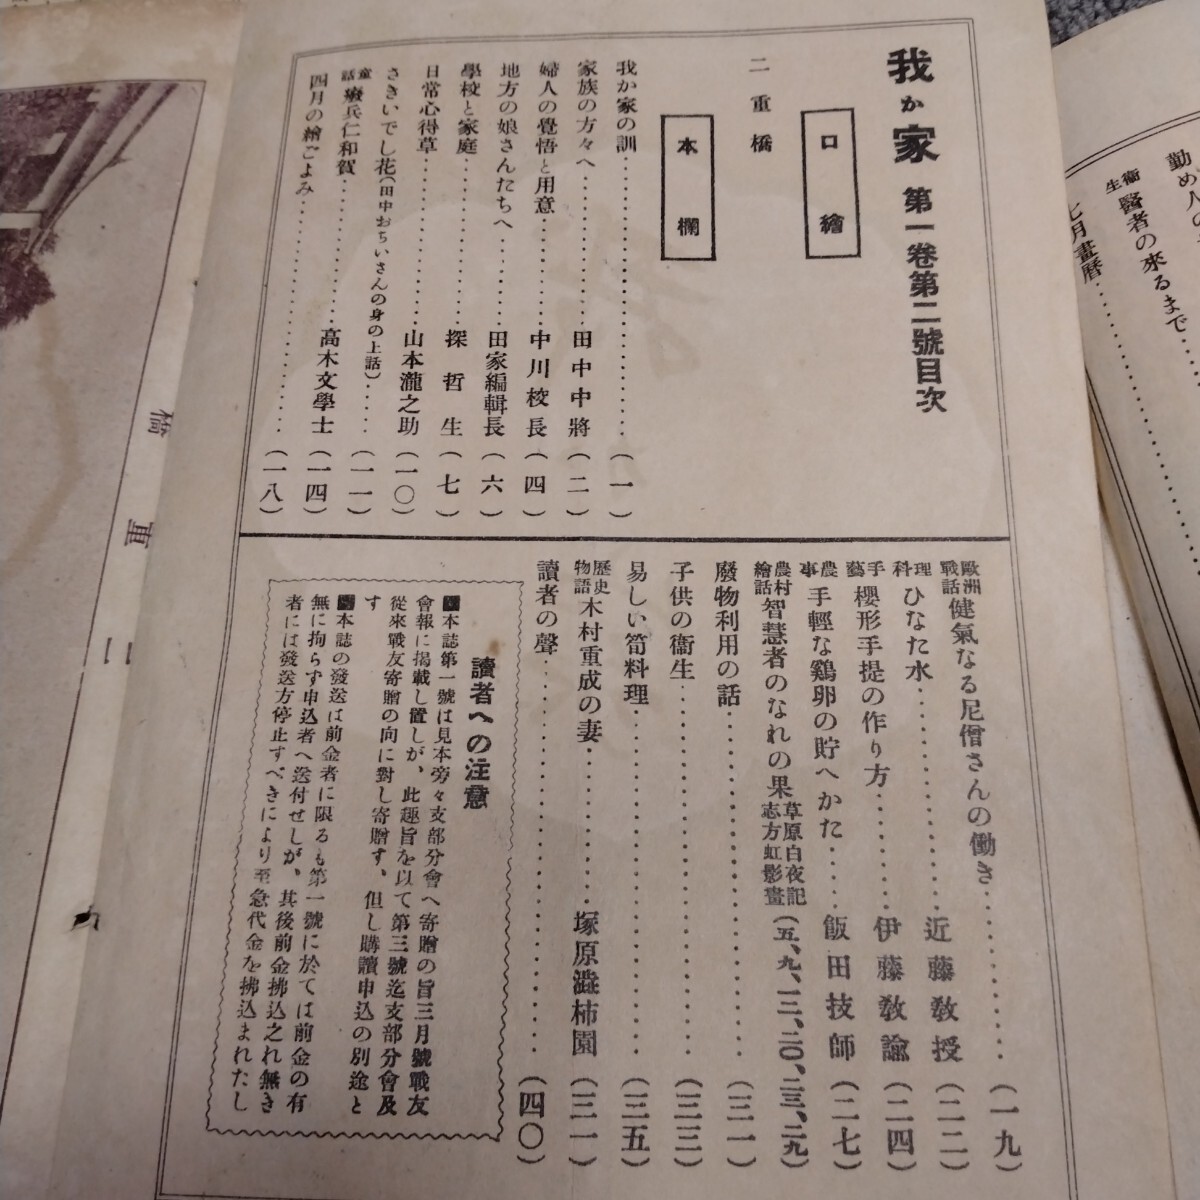 我か家 第一卷第二號目次
口繪
二重橋
本欄
我か家の訓……(一)
家族の方々へ……田中中將(二)
婦人の覺悟と用意……中川校長(四)
地方の娘さんたちへ……田家編輯長(六)
學校と家庭……探哲生(七)
日常心得草……山本瀧之助(一〇)
さきいでし花(田中おちいさんの身の上話)……(一一)
童話 癈兵仁和賀……高木文學士(一四)
四月の繪ごよみ……(一八)
歐洲戰話 健氣なる尼僧さんの働き……(一九)
理科 ひなた水……近藤敎授(二二)
手藝 櫻形手提の作り方……伊藤敎諭(二四)
農事 手輕な鷄卵の貯へかた……飯田技師(二七)
農村繪話 智慧者のなれの果 草原白夜記 志方虹影畫(五、九、一三、二〇、二三、二九)
廢物利用の話……(三一)
子供の衞生……(三三)
易しい筍料理……(三五)
歷史物語 木村重成の妻……塚原澁柿園(三一)
讀者の聲……(四〇)
讀者への注意
■本誌第一號は見本旁々支部分會へ寄贈の旨三月號戰友
會報に揭載し置しが、此趣旨を以て第三號迄支部分會及
從來戰友寄贈の向に對し寄贈す、但し購讀申込の別途と
す
■本誌の發送は前金者に限るも第一號に於ては前金の有
無に拘らず申込者へ送付せしが、其後前金拂込之れ無き
者には發送方停止すべきにより至急代金を拂込まれたし
二重橋
勤め人の
衞生 醫者の來るまで……
七月畫曆……